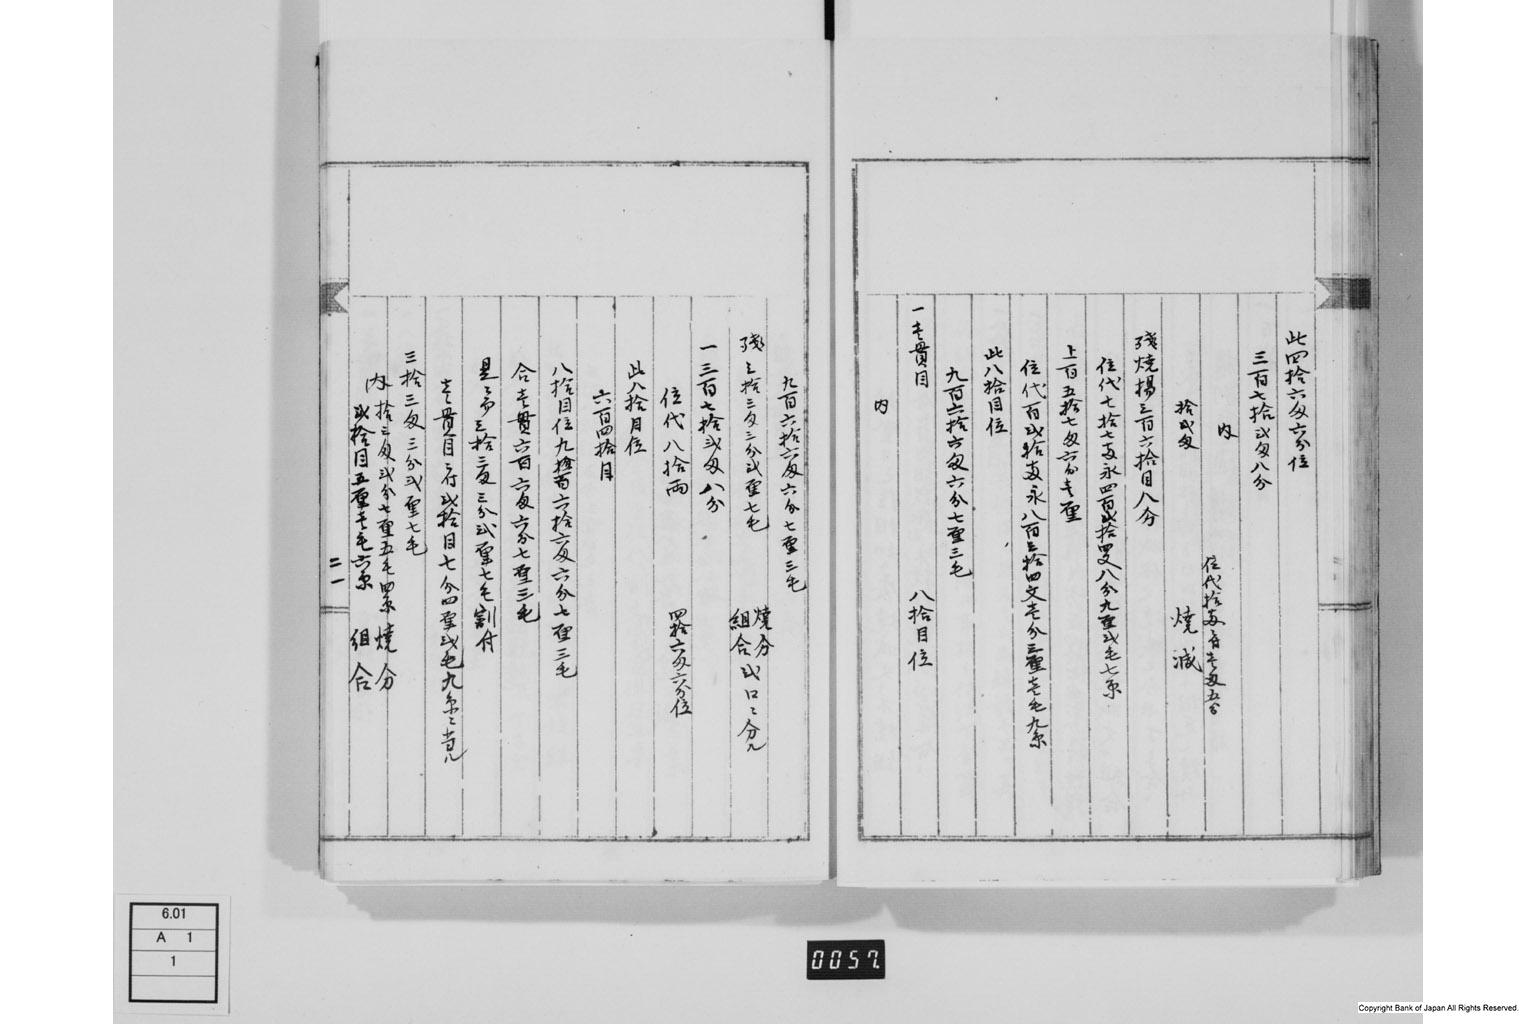 此四拾六匁六分位
三百七拾弐匁八分
内
位代拾両壱匁五分
拾弐匁 焼減
残焼揚三百六拾目八分
位代七拾七両永四百弐拾四文八分九厘弐毛七糸
上百五拾七匁六分壱厘
位代百弐拾両永八百三拾四文壱分三厘壱毛九糸
此八拾目位
九百六拾六匁六分七厘三毛
一壱貫目 八拾目位
内
九百六拾六匁六分七厘三毛
残三拾三匁三分弐厘七毛 焼分組合弐口ニ分ル
一三百七拾弐匁八分
位代八拾両 四拾六匁六分位
此八拾目位
六百四拾目
八拾目位九百六拾六匁六分七厘三毛
合壱貫六百六匁六分七厘三毛
是ニ而三拾三匁三分弐厘七毛割付
壱貫目ニ付弐拾目七分四厘弐毛九糸ニ当ル
三拾三匁三分弐厘七毛
内 拾三匁弐分七厘五毛四糸 焼分
弐拾目五厘壱毛六糸 組合
二一
6.01
A 1
1
0057.
Copyright Bank of Japan All Rights Reserved.